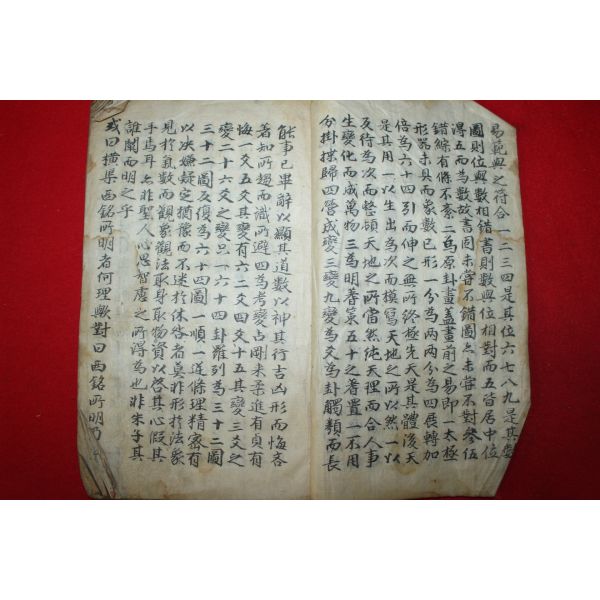 易範與之符合一二三四是其位六七八九是其變
圖則位與數相錯書則數與位相對而五皆居中位
得五而為數故書固未嘗不錯圖亦未嘗不對參伍
錯綜有條不紊二為原卦畫蓋畫前之易即一太極
形器未具而象數已形一分為兩兩分為四展轉加
倍為六十四引而伸之無所終極先天是其體後天
是其用一以生出為次而模寫天地之所以然一以
及待為次而整頓天地之所當然純天理而合人事
生變化而成萬物三為明蓍策五十之蓍置一不用
分掛揲歸四營成變三變九變為爻為卦觸類而長
能事已畢辭以顯其道數以神其行吉凶形而悔吝
著知所趨而識所避四為考變占剛來柔進有貞有
悔一爻五爻其變有六二爻四爻十五其變三爻之
變二十六爻之變只一六十四卦羅列為三十二圖
三十二圖反復為六十四圖一順一逆條理精密有
以決嫌疑定猶豫而不迷於休咎者莫非形於法象
見於氣數而觀象觀法取身取物資以啓其心假其
手焉耳亦非聖人心思智慮之所得為也非朱子其
誰闡而明之乎
或曰橫渠西銘所明者何理歟對曰西銘所明